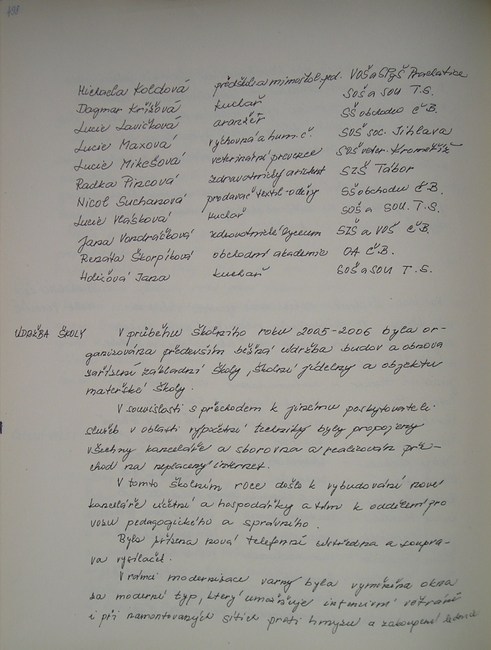 Michaela Koldová předškol. a mimoškol. ped. VOŠ a SPgŠ Prachatice
Dagmar Křížová kuchař SOŠ a SOU T.S.
Lucie Lavičková aranžér SŠ obchodu Č.B.
Lucie Maxová výchovná a hum. č. SOŠ soc. Jihlava
Lucie Mikešová veterinární prevence SOŠ veter. Kroměříž
Radka Pincová zdravotnický asistent SZŠ Tábor
Nicol Suchanová prodavač textil-oděvy SŠ obchodu Č.B.
Lucie Vlášková kuchař SOŠ a SOU T.S.
Jana Vondráčková zdravotnické lyceum SZŠ a VOŠ Č.B.
Renata Škorpíková obchodní akademie OA Č.B.
Jana kuchař SOŠ a SOU T.S.
ÚDRŽBA ŠKOLY V průběhu školního roku 2005-2006 byla or-
ganizována především běžná údržba budov a obnova
zařízení základní školy, školní jídelny a objektu
mateřské školy.
V souvislosti s přechodem k jinému poskytovateli
služeb v oblasti výpočetní techniky byly propojeny
všechny kanceláře a sborovna a realizován pře-
chod na neplacený internet.
V tomto školním roce došlo k vybudování nové
kanceláře účetní a hospodářky a tím k oddělení pro
vozu pedagogického a správního.
Byla zřízena nová telefonní ústředna a soupra-
va vysílaček.
V rámci modernizace varny byla vyměněna okna
za moderní typ, který umožňuje intenzivní větrání
i při namontovaných sítích proti hmyzu a zakoupení